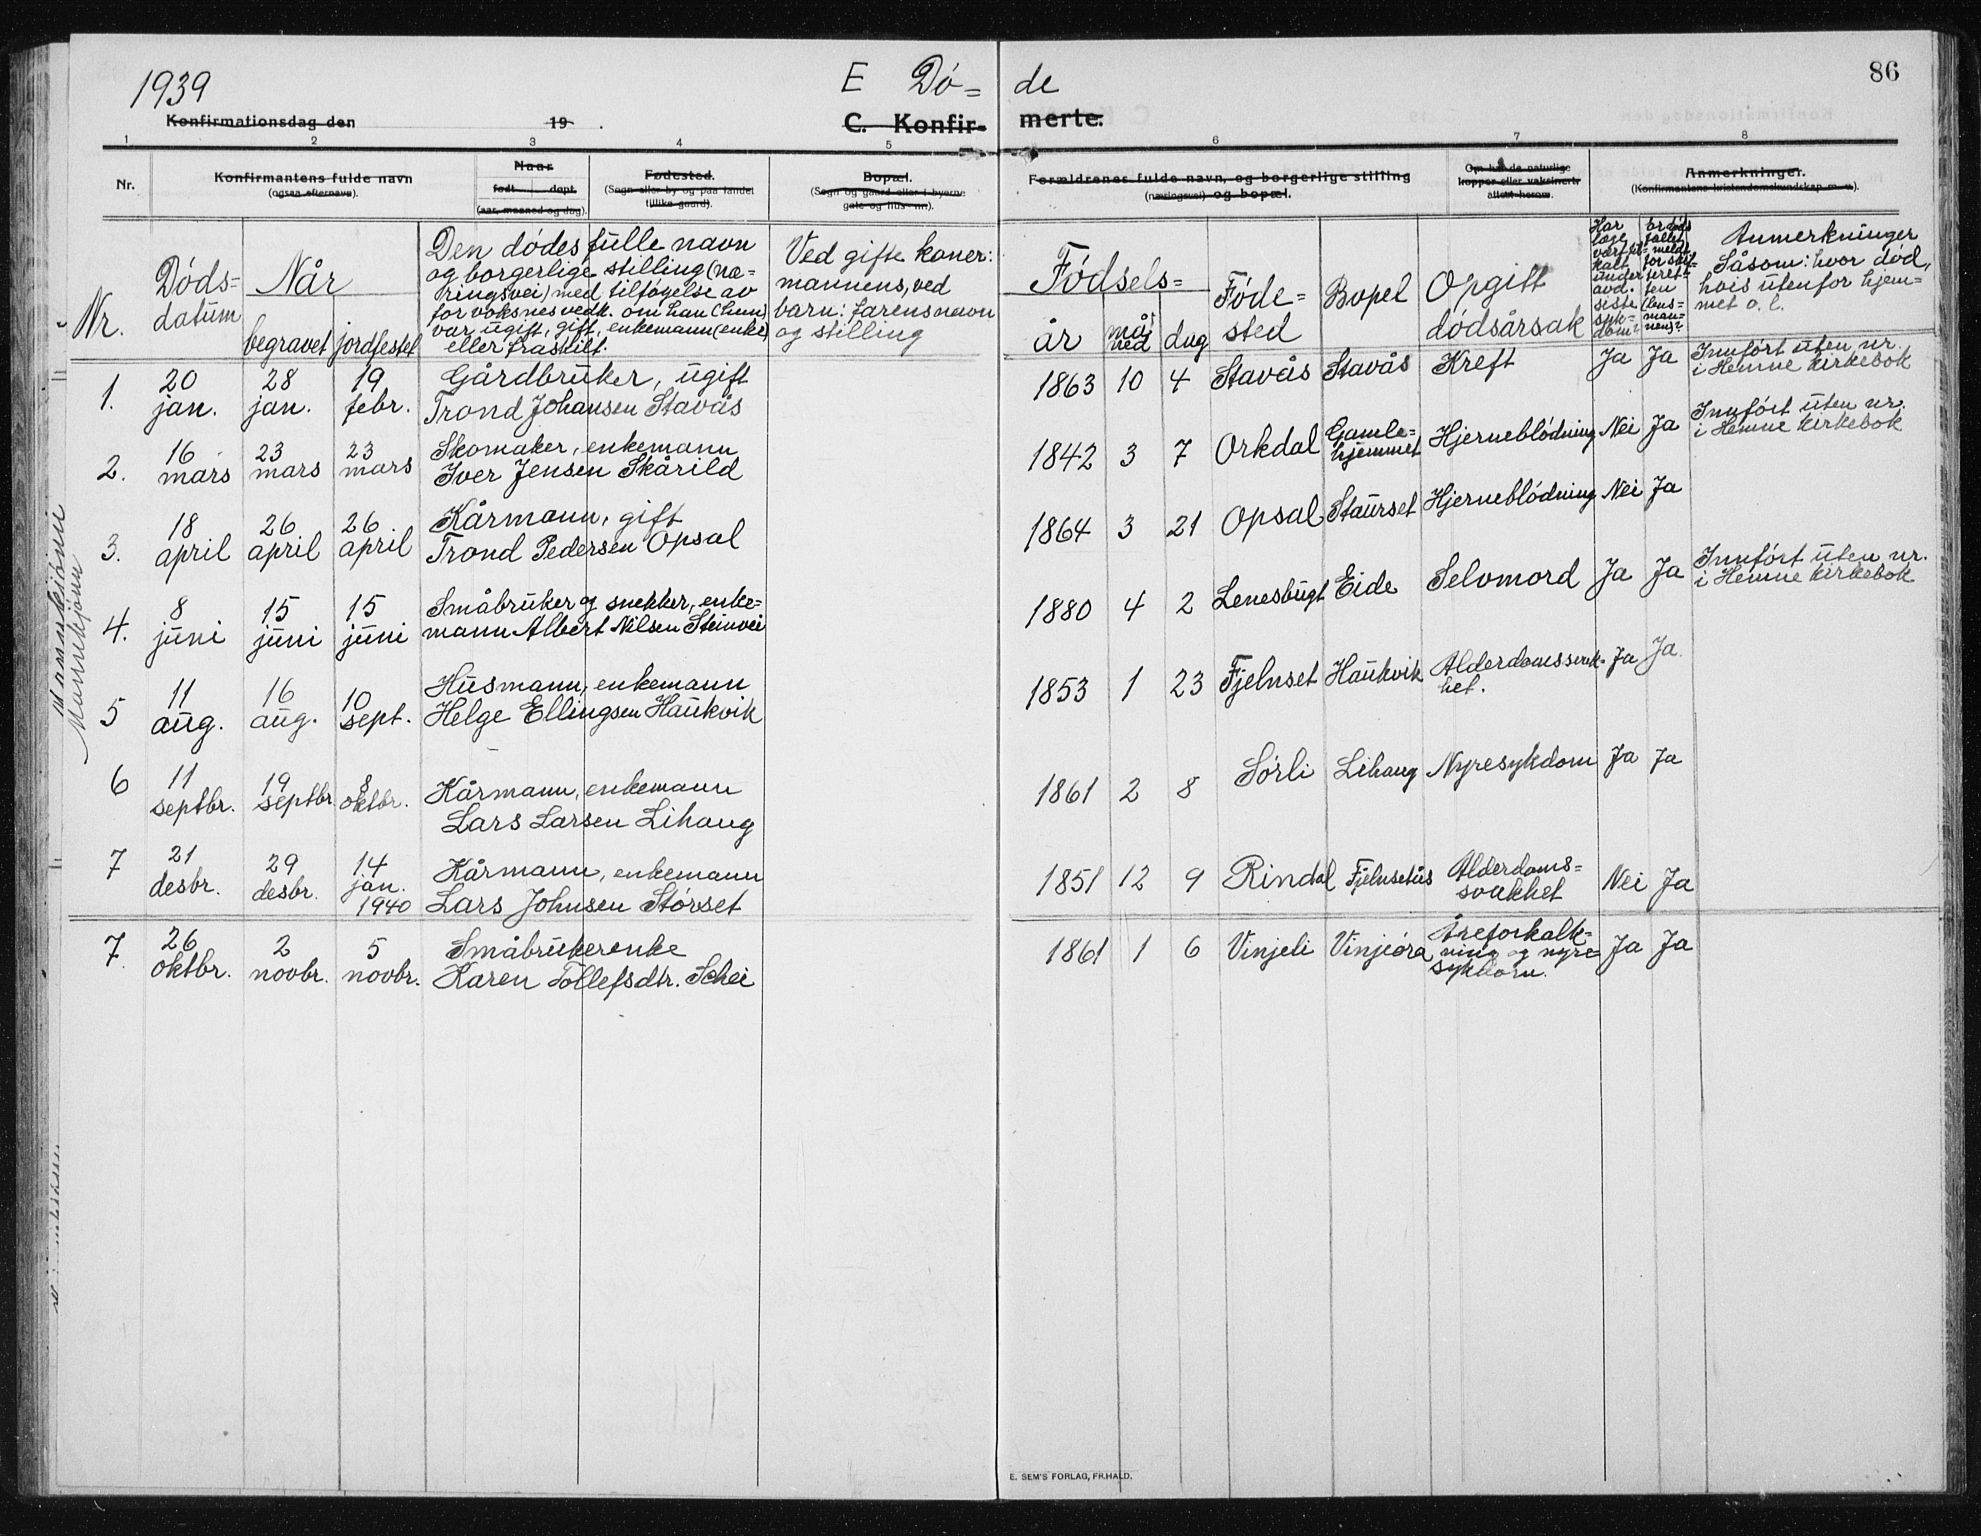 1939
E Dö= de
86
Konfirmationsdag den 19 .
C. Konfir- merte.
1 2 3 4 5 6 7 8
Nr.
Konfirmantens fulde navn
(ogsaa efternavn).
Naar
født døpt
(aar, maaned og dag).
Fødested.
(Sogn eller by og paa landet
tillike gaard).
Bopæl.
(Sogn og gaard eller i byerne
gate og hus-nr.).
Forældrenes fulde navn, og borgerlige stilling
(næringsvei) og bopæl.
Om har de naturlige
kopper eller vaksinerte
attest herom.
Anmerkninger.
(Konfirmantens kristendomskundskap m. v.).
Nr.
Döds=
datum
Når
begravet jordfestet
Den dödes fulle navn
og borgerlige stilling (næ-
ringsvei) med tilföyelse av
for voksnes vedk. om han (hun)
var ugift, gift, enkemann (enke)
eller fraskilt.
Ved gifte koner:
mannens, ved
barn: farens navn
og stilling
Födsels=
år må-
ned dag
Föde=
sted
Bopel
Opgitt
dödsårsak
Har
læge
vært til-
kalt
under
avd.
siste
syk-
dom?
Er döds
fallet
meldt
for skif-
teret-
ten
(lens-
man-
nen)?
Anmerkninger
Såsom: hvor död,
hvis utenfor hjem-
met o. l.
Mannkjönn
Mannkjönn
1. 20 jan. 28 jan. 19 febr. Gårdbruker, ugift
Trond Johansen Stavås
1863 10 4 Stavås Stavås Kreft Ja Ja Innfört uten nr.
i Hemne kirkebok
2. 16 mars 23 mars 23 mars Skomaker, enkemann
Iver Jensen Skårild
1842 3 7 Orkdal Gamle=
hjemmet Hjerneblödning Nei Ja Innfört uten nr.
i Hemne kirkebok
3. 18 april 26 april 26 april Kårmann, gift
Trond Pedersen Opsal
1864 3 21 Opsal Staurset Hjerneblödning Nei Ja
4. 8 juni 15 juni 15 juni Småbruker og snekker, enke=
mann Albert Nilsen Steinvei
1880 4 2 Lenesbugt Eide Selvmord Ja Ja Innfört uten nr.
i Hemne kirkebok
5 11 aug. 16 aug. 10 sept. Husmann, enkemann
Helge Ellingsen Haukvik
1853 1 23 Fjelnset Haukvik Alderdomssvak-
het. Ja Ja.
6 11 septbr. 19 septbr. 8 oktbr. Kårmann, enkemann
Lars Larsen Lihaug
1861 2 8 Sörli Lihaug Nyresykdom Ja Ja
7 21 desbr. 29 desbr. 14 jan. 1940 Kårmann, enkemann
Lars Johnsen Störset
1851 12 9 Rindal Fjelnsetås Alderdoms=
svakhet Nei Ja
7. 26 oktbr. 2 novbr. 5 novbr. Småbrukerenke
Karen Tollefsdtr. Schei
1861 1 6 Vinjeli Vinjeöra Åreforkalk-
ning og nyre-
sykdom. Ja Ja
E. SEM'S FORLAG, FR.HALD.